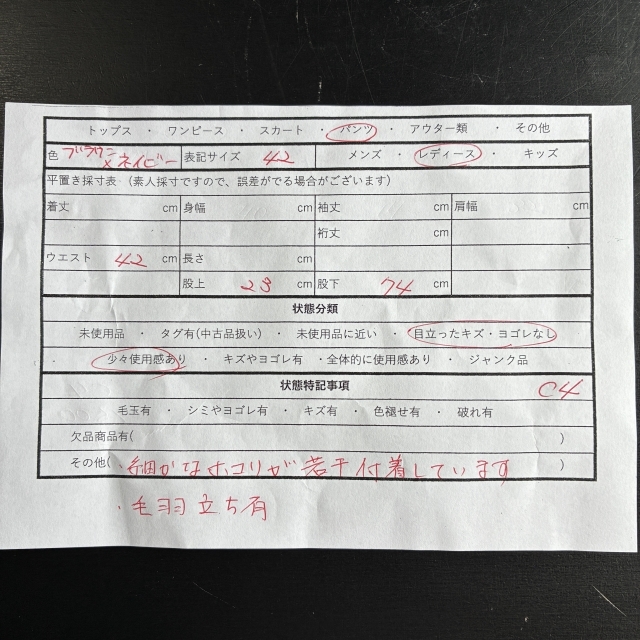 トップス ・ ワンピース ・ スカート ・ パンツ ・ アウター類 ・ その他
色 ブラウン×ネイビー 表記サイズ 42 メンズ ・ レディース ・ キッズ
平置き採寸表 (素人採寸ですので、誤差がでる場合がございます)
着丈 cm 身幅 cm 袖丈 cm 肩幅 cm
裄丈 cm
ウエスト 42 cm 長さ cm
股上 23 cm 股下 74 cm
状態分類
未使用品 ・ タグ有(中古品扱い) ・ 未使用品に近い ・ 目立ったキズ・ヨゴレなし
・ 少々使用感あり ・ キズやヨゴレ有 ・全体的に使用感あり ・ ジャンク品
状態特記事項 C4
毛玉有 ・ シミやヨゴレ有 ・ キズ有 ・ 色褪せ有 ・ 破れ有
欠品商品有( )
その他( ・細かなホコリが若干付着しています )
・毛羽立ち有